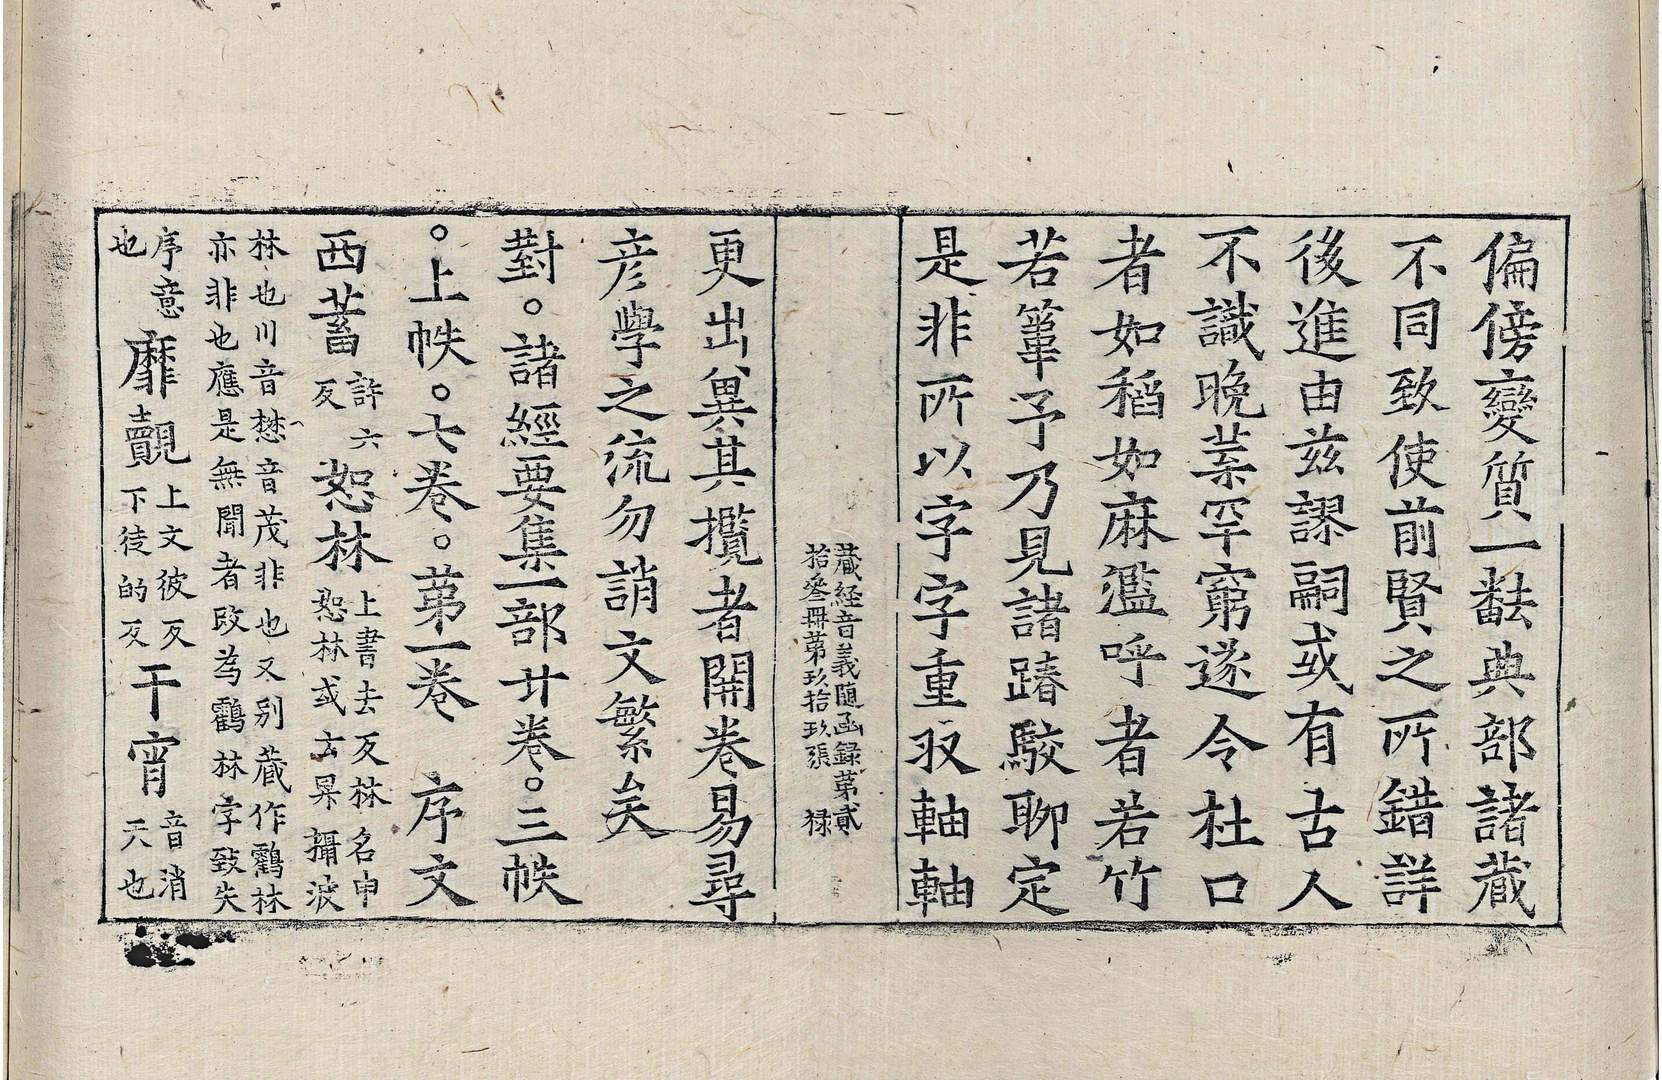 偏傍變質一𪐴典部諸藏
不同致使前賢之所錯詳
後進由兹謬嗣或有古人
不識晚業罕窮遂令杜口
者如稻如麻濫呼者若竹
若葦予乃見諸蹖駮聊定
是非所以字字重㕛軸軸
藏經音義隨函録第貳
拾叄冊第玖拾玖張 禄
更出兾其攬者開卷易尋
彦學之流勿誚文繁矣
對。諸經要集一部廿卷。三帙
。上帙。七卷。第一卷 序文
西蓄許六反恕林上書去反林名申恕林或云昇攝波
林也川音㮊音茂非也又别藏作鸖林
亦非也應是無聞者改為鸖林字致失
序意也靡覿上文彼反下徒的反干宵音消天也